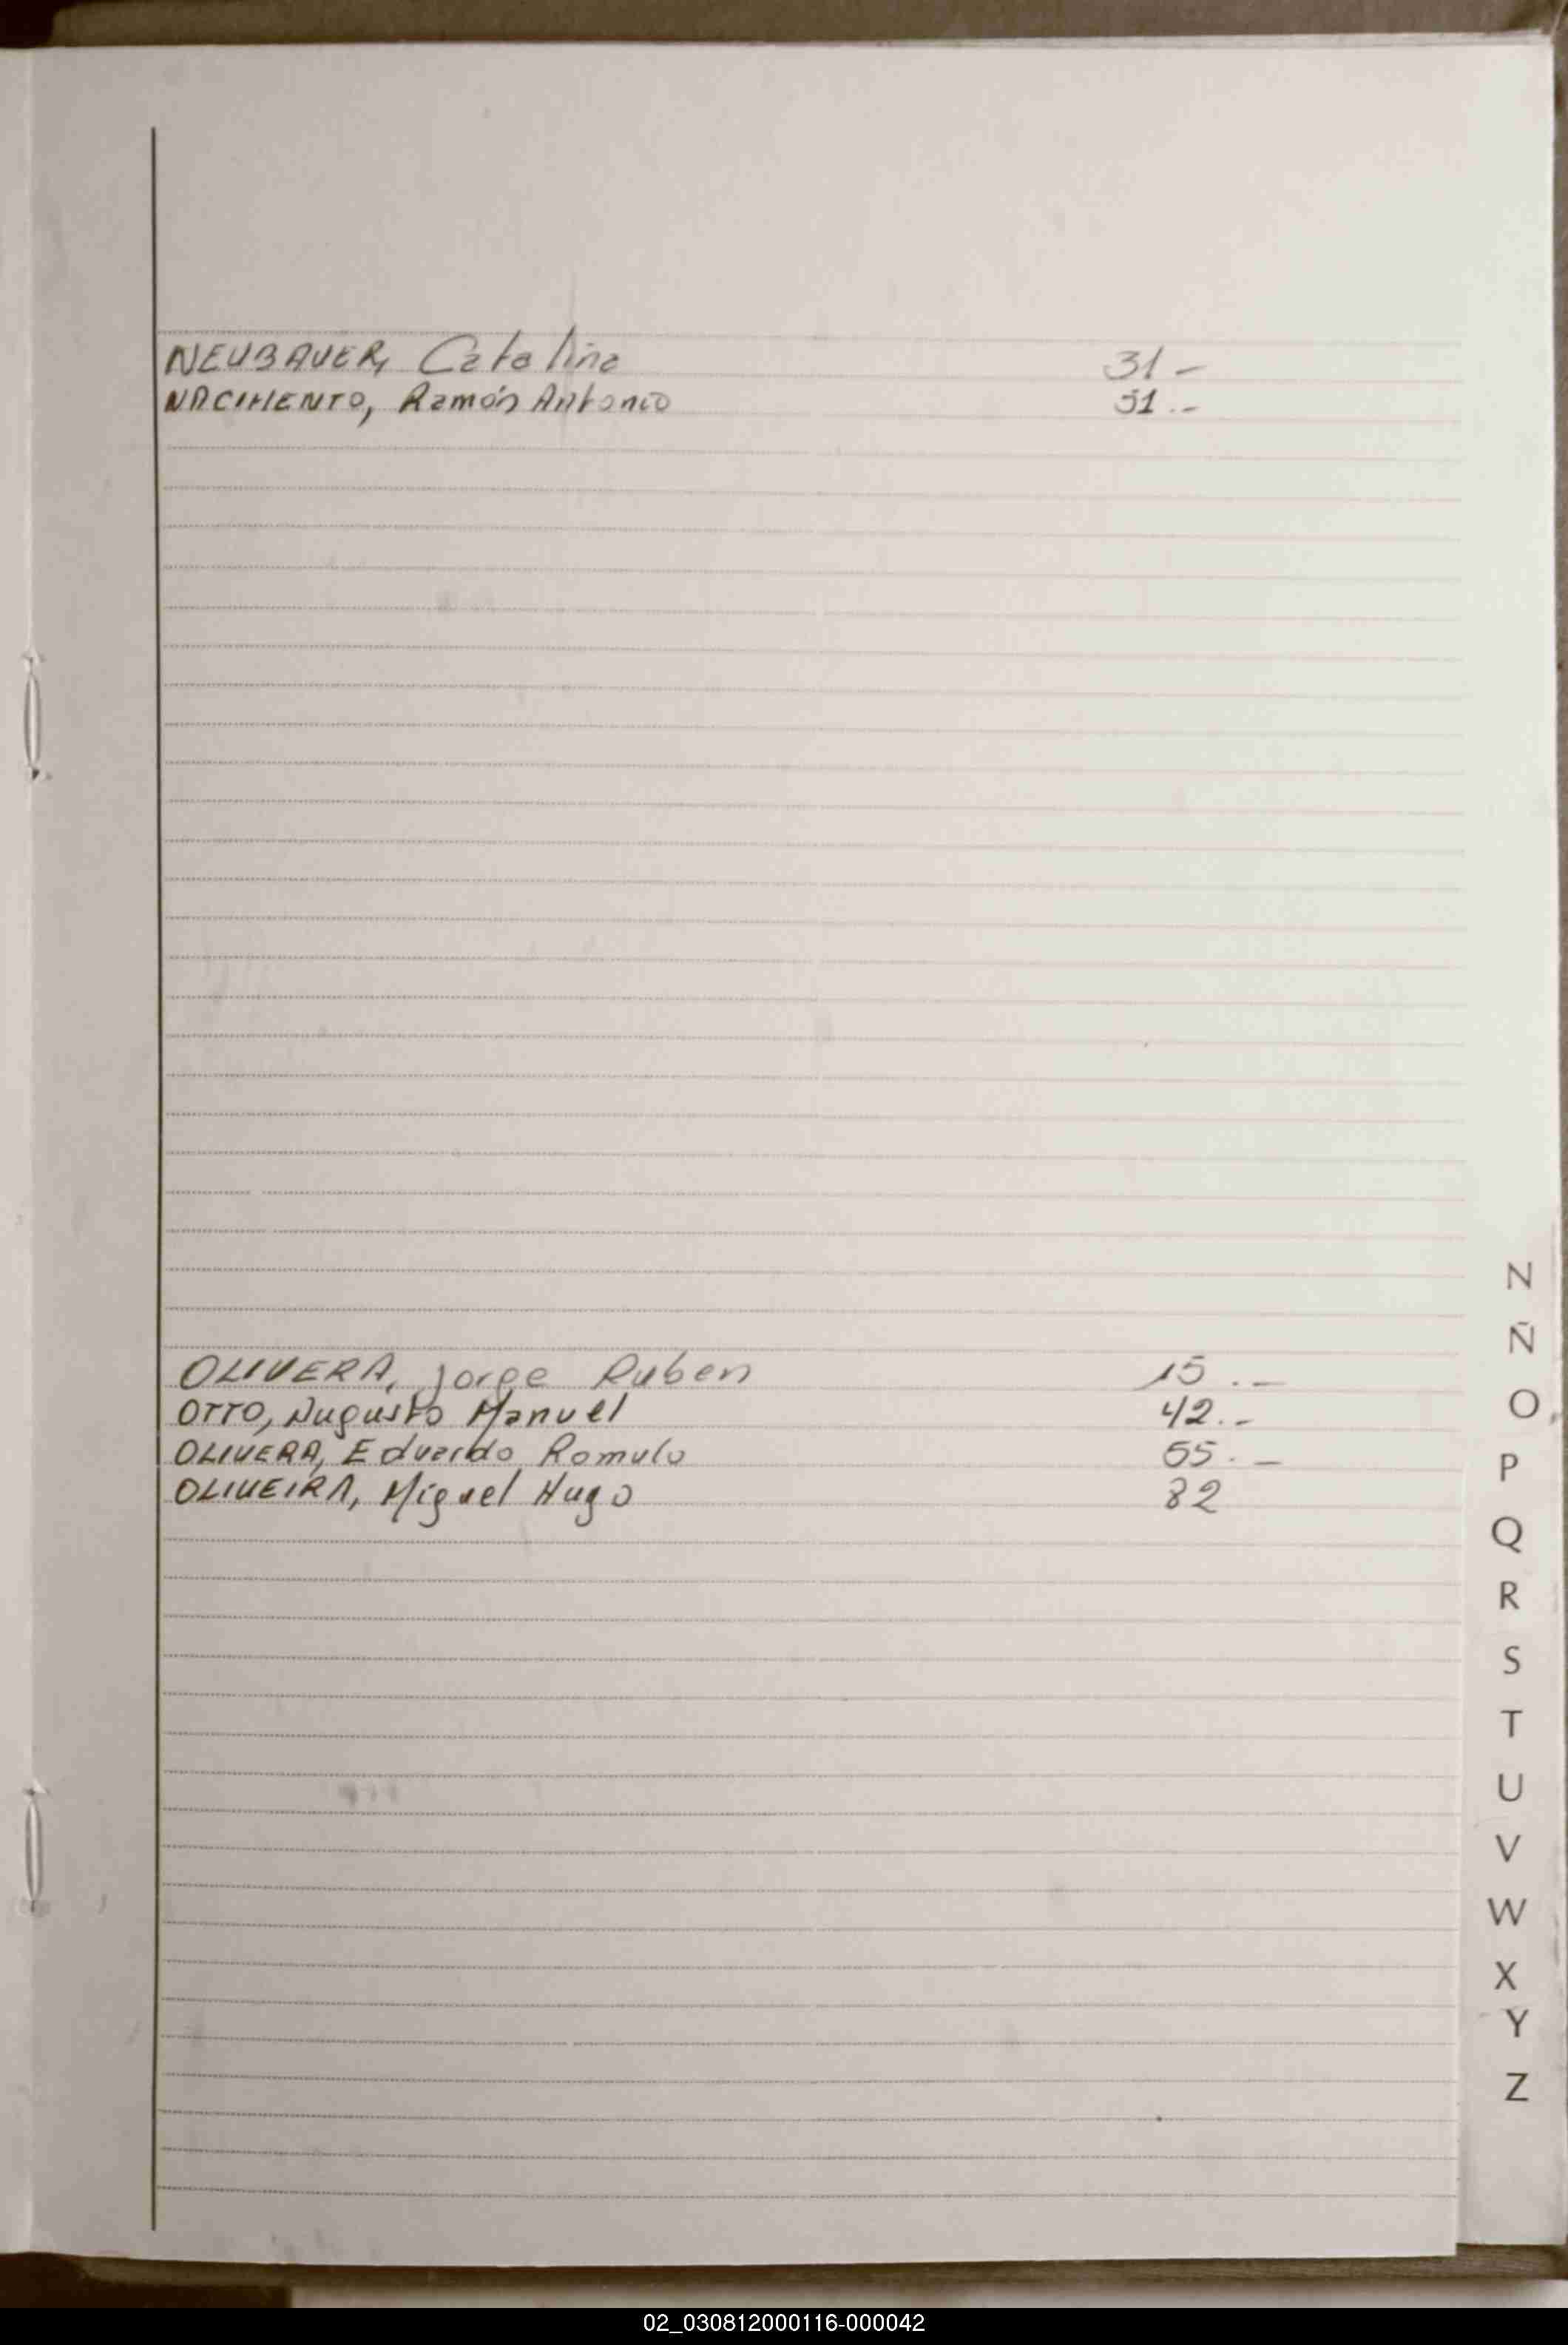 NEUBAUER, Catalina 31 -
NACIMENTO, Ramón Antonio 51 .-
OLIVERA, Jorge Ruben 15 . -
OTTO, Augusto Manuel 42 . -
OLIVERA, Eduardo Romulo 55 . -
OLIVEIRA, Miguel Hugo 82
N
Ñ
O
P
Q
R
S
T
U
V
W
X
Y
Z
02_030812000116-000042